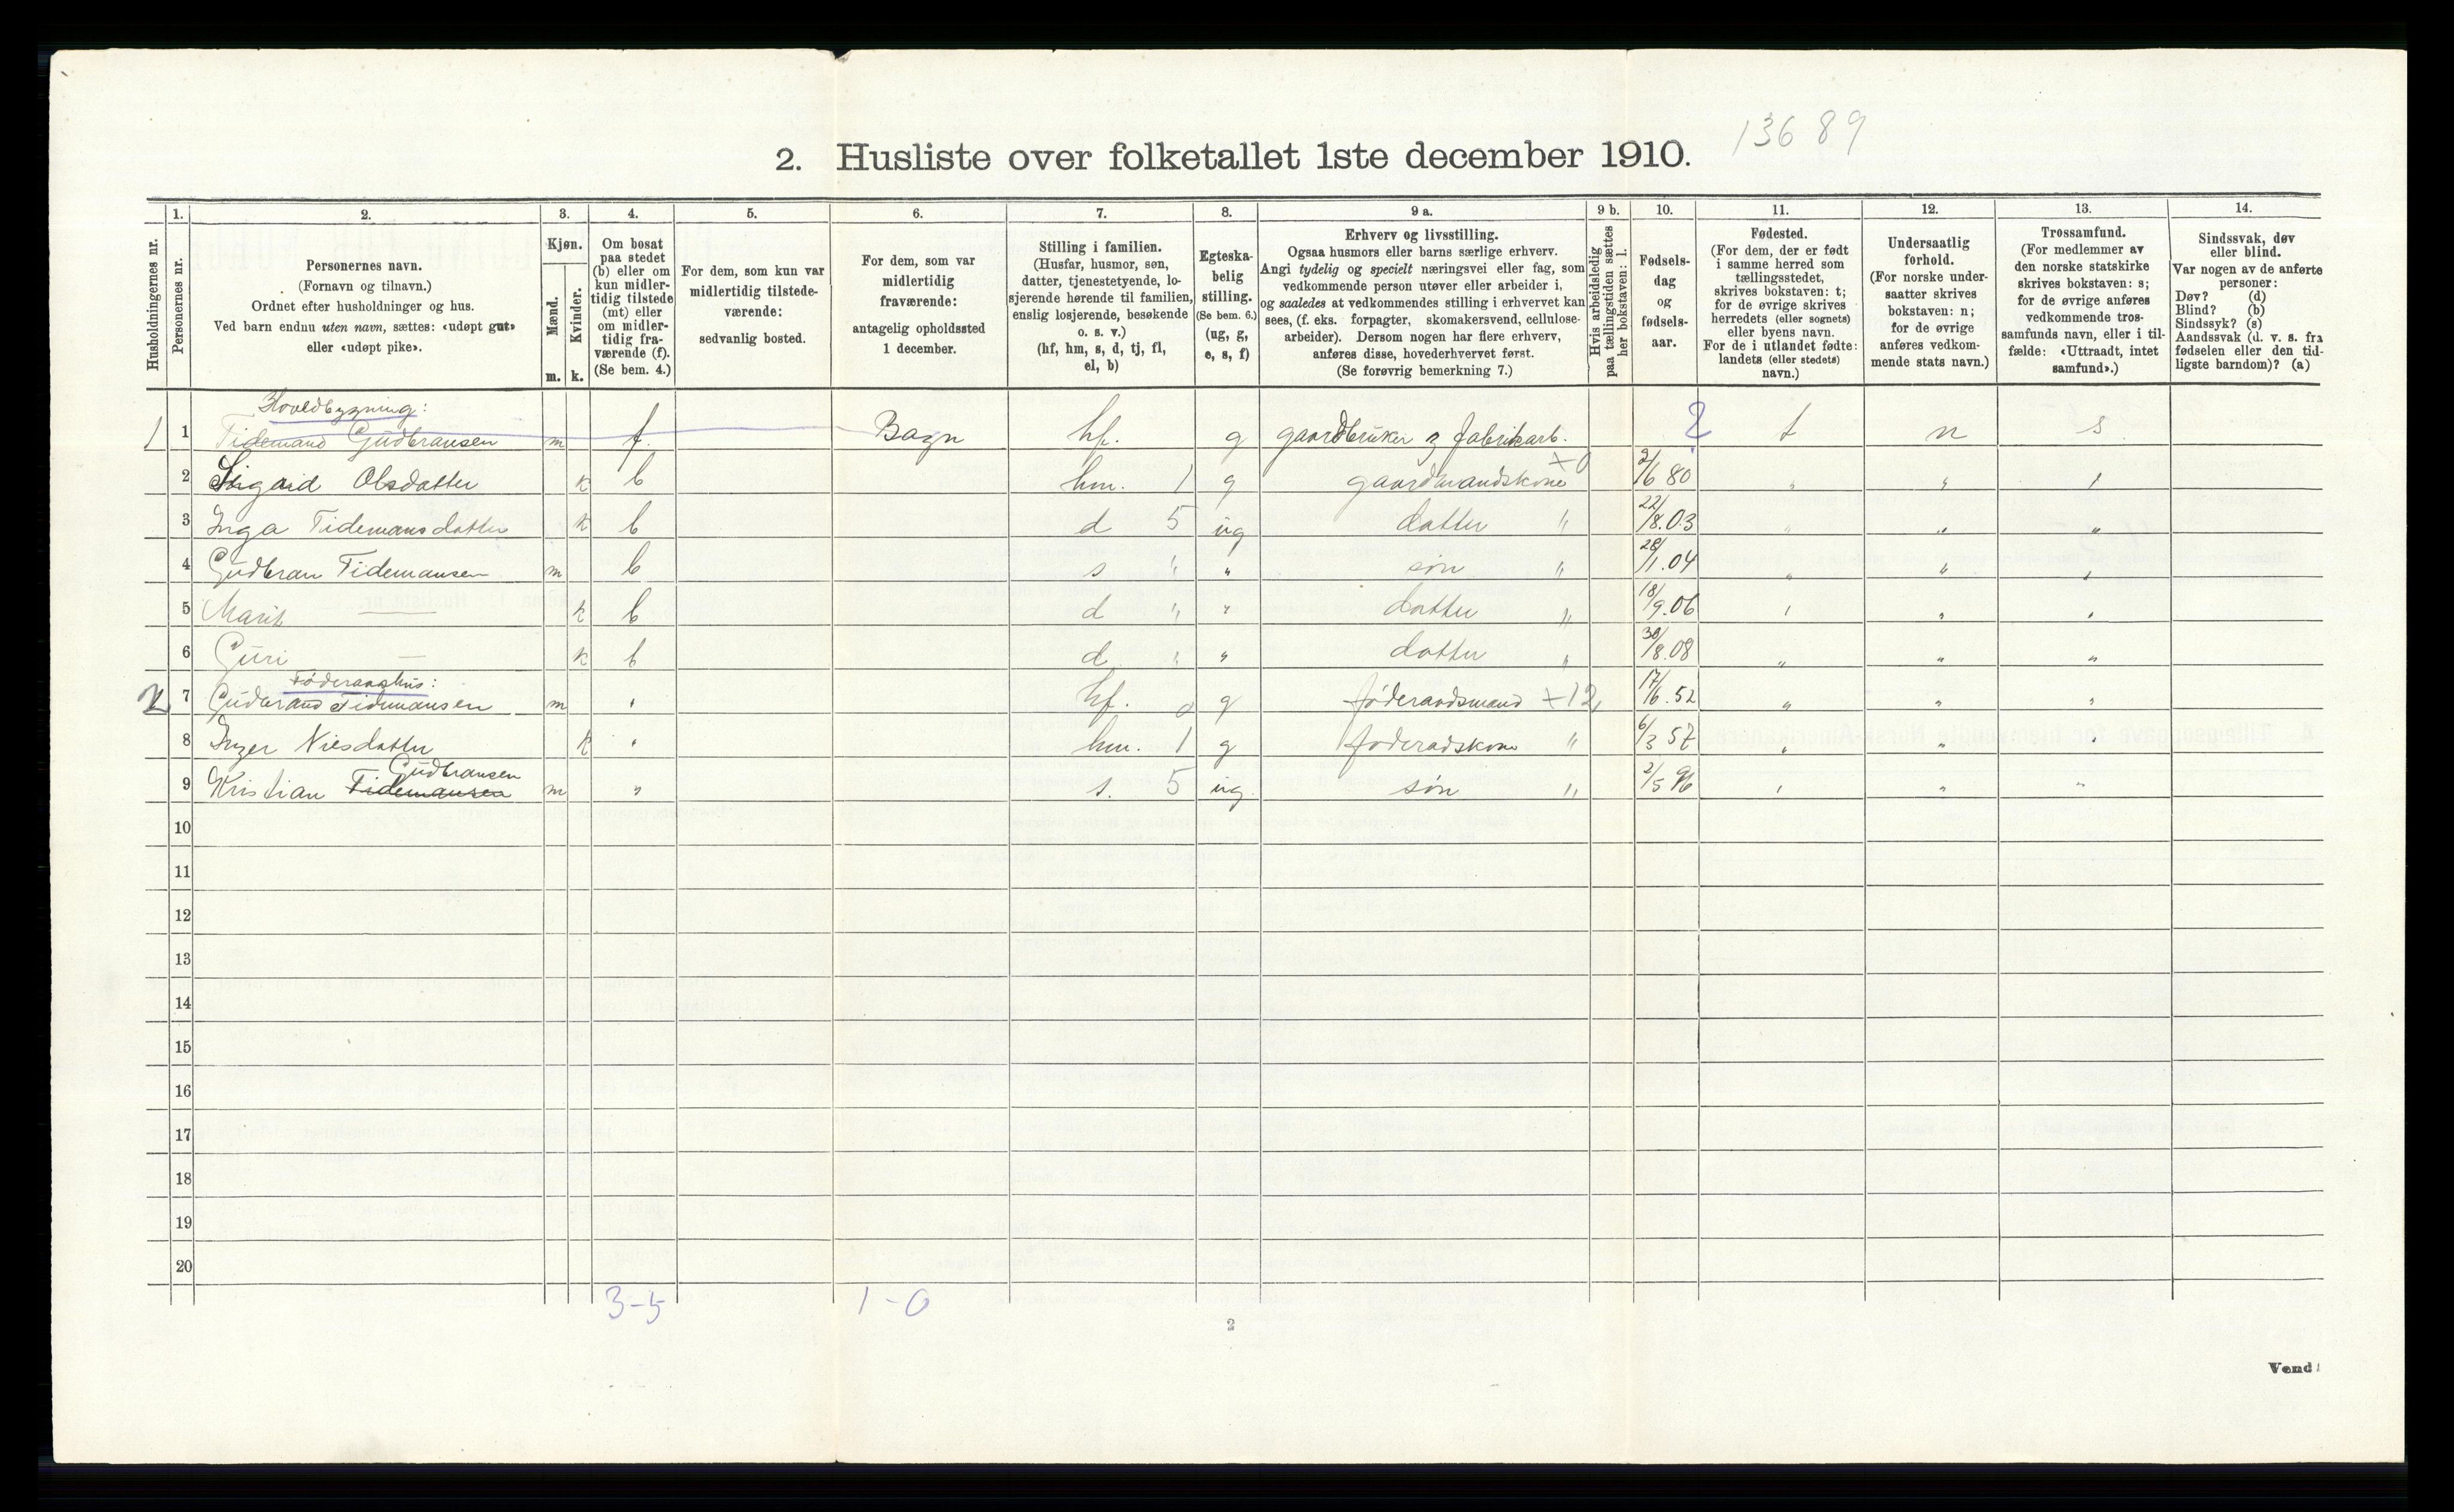 13689
2. Husliste over folketallet 1ste december 1910.
1. 2. 3. 4. 5. 6. 7. 8. 9 a. 9 b. 10. 11. 12. 13. 14.
Husholdningernes nr.
Personernes nr.
Personernes navn.
(Fornavn og tilnavn.)
Ordnet efter husholdninger og hus.
Ved barn endnu uten navn, sættes: «udøpt gut»
eller «udøpt pike».
Kjøn.
Mænd.
Kvinder.
m. k.
Om bosat
paa stedet
(b) eller om
kun midler-
tidig tilstede
(mt) eller
om midler-
tidig fra-
værende (f).
(Se bem. 4.)
For dem, som kun var
midlertidig tilstede-
værende:
sedvanlig bosted.
For dem, som var
midlertidig
fraværende:
antagelig opholdssted
1 december.
Stilling i familien.
(Husfar, husmor, søn,
datter, tjenestetyende, lo-
sjerende hørende til familien,
enslig losjerende, besøkende
o. s. v.)
(hf, hm, s, d, tj, fl,
el, b)
Egteska-
belig
stilling.
(Se bem. 6.)
(ug, g,
e, s, f)
Erhverv og livsstilling.
Ogsaa husmors eller barns særlige erhverv.
Angi tydelig og specielt næringsvei eller fag, som
vedkommende person utøver eller arbeider i,
og saaledes at vedkommendes stilling i erhvervet kan
sees, (f. eks. forpagter, skomakersvend, cellulose-
arbeider). Dersom nogen har flere erhverv,
anføres disse, hovederhvervet først.
(Se forøvrig bemerkning 7.)
Hvis arbeidsledig
paa tællingstiden sættes
her bokstaven: l.
Fødsels-
dag
og
fødsels-
aar.
Fødested.
(For dem, der er født
i samme herred som
tællingsstedet,
skrives bokstaven: t;
for de øvrige skrives
herredets (eller sognets)
eller byens navn.
For de i utlandet fødte:
landets (eller stedets)
navn.)
Undersaatlig
forhold.
(For norske under-
saatter skrives
bokstaven: n;
for de øvrige
anføres vedkom-
mende stats navn.)
Trossamfund.
(For medlemmer av
den norske statskirke
skrives bokstaven: s;
for de øvrige anføres
vedkommende tros-
samfunds navn, eller i til-
fælde: «Uttraadt, intet
samfund».)
Sindssvak, døv
eller blind.
Var nogen av de anførte
personer:
Døv? (d)
Blind? (b)
Sindssyk? (s)
Aandssvak (d. v. s. fra
fødselen eller den tid-
ligste barndom)? (a)
Hovedbygning:
1 1 Tidemand Gudbransen m f. Bagn hf. g gaardbruker & fabrikarb. ? t n s
2 Sigrid Olsdatter k b hm. 1 g gaardmandskone +0 2/6 80 " " "
3 Inga Tidemansdatter k b d 5 ug datter " 22/8.03 " " "
4 Gudbran Tidemansen m b s " " søn " 28/1.04 " " "
5 Marit — k b d " " datter " 18/9.06 " " "
6 Guri — k b d " " datter " 30/8.08 " " "
Føderaashus:
2 7 Gudbrand Tidemansen m " hf. 0 g føderaadsmand +12, 17/6.52 " " "
8 Inger Nilsdatter k " hm. 1 g føderadskone " 6/3 57 " " "
Gudbransen
9 Kristian Tidemansen m " s. 5 ug. søn " 2/5 96 " " "
10
11
12
13
14
15
16
17
18
19
20
3-5 1-0
2
Vend!